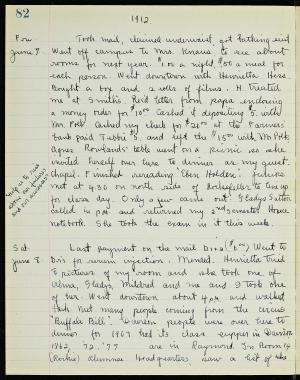 82
1912.
Fri.
June 7
Took mail, cleaned underwaist, got bathing suit
Went off campus to Mrs. Knauss to see about
rooms for next year. $1.00 a night, $.50 a meal for
each person. Went downtown with Henrietta Hess.
Bought a box and 2 rolls of films. H. treated
me at Smith's. Rec'd letter from papa enclosing
a money order for $10.00 Cashed it depositing 5 with
Mr. Polk. Cashed my check for $20.00 at the Farmers'
bank paid Tebbie 5 and left the $15.00 with Mr. Polk
Agnes Rowlands' table went on a picnic so she
invited herself over here to dinner as my guest.
Chapel. Finished rereading "Eben Holden".
met at 4:30 on north side of Rockefeller to line up
for class day. Only a few came out. Gladys Sutton
called 4 P.M. and returned my 2nd semester Horace
notebook. She took the exam in it this week.
Sat.
June 8
Last payment on the mail Went to
Dr's for serum injection. Mended. Henrietta tried
2 pictures of my room and she took one of
Alma, Gladys, Mildred and me and I took one
of her. Went downtown about 4 P.M. and walked
back. Met many people coming from the circus
"Buffalo Bill". Davison people were over here to
dinner for 1909 had its class supper in Davison
1862, '72, '77 are in Raymond. In Room 14
(Rockie) Alumnae Headquarters saw a list of the